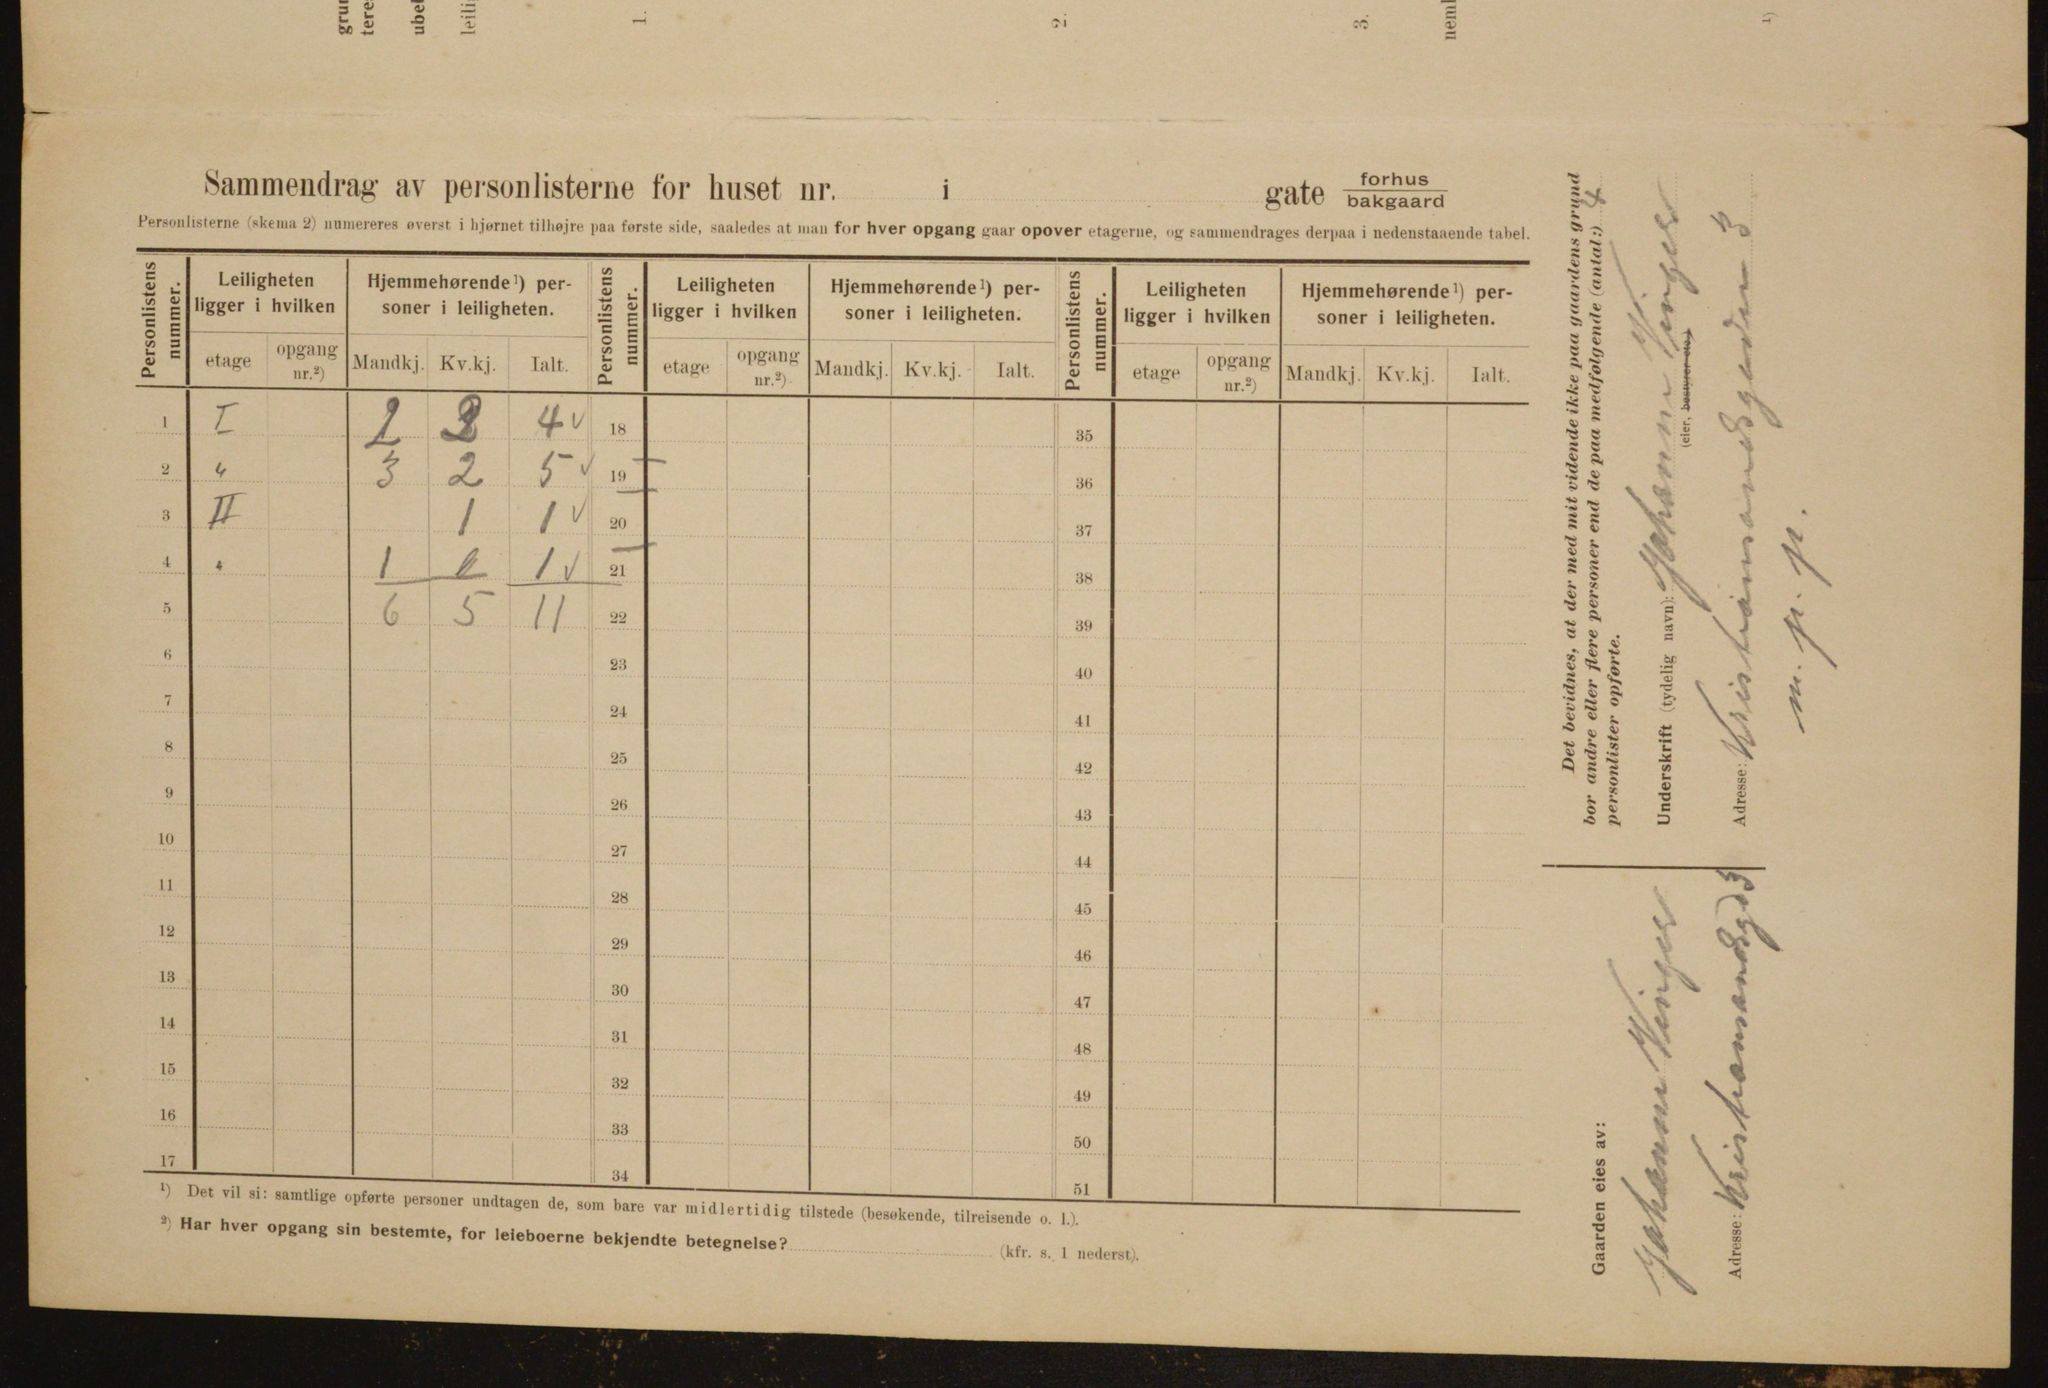 grun
teres
ubeb
leilig
1.
2.
3.
nemli
1)
Sammendrag av personlisterne for huset nr. i gate forhus
bakgaard
Personlisterne (skema 2) numereres øverst i hjørnet tilhøjre paa første side, saaledes at man for hver opgang gaar opover etagerne, og sammendrages derpaa i nedenstaaende tabel.
Personlistens nummer. Leiligheten ligger i hvilken Hjemmehørende¹) personer i leiligheten. Personlistens nummer. Leiligheten ligger i hvilken Hjemmehørende¹) personer i leiligheten. Personlistens nummer. Leiligheten ligger i hvilken Hjemmehørende¹) personer i leiligheten.
etage opgang nr.²) Mandkj. Kv.kj. Ialt. etage opgang nr.²) Mandkj. Kv.kj. Ialt. etage opgang nr.²) Mandkj. Kv.kj. Ialt.
1 I 2 2 4 √ 18 35
2 " 3 2 5 √ 19 36
3 II 1 1 √ 20 37
4 " 1 1 √ 21 38
5 6 5 11 22 39
6 23 40
7 24 41
8 25 42
9 26 43
10 27 44
11 28 45
12 29 46
13 30 47
14 31 48
15 32 49
16 33 50
17 34 51
¹) Det vil si: samtlige opførte personer undtagen de, som bare var midlertidig tilstede (besøkende, tilreisende o. l.).
²) Har hver opgang sin bestemte, for leieboerne bekjendte betegnelse? (kfr. s. 1 nederst).
Det bevidnes, at der med mit vidende ikke paa gaardens grund
bor andre eller flere personer end de paa medfølgende (antal:) 4
personlister opførte.
Underskrift (tydelig navn): Johanne Vinger
(eier, bestyrer etc.)
Adresse: Kristiansandsgaden 3
m. p. p.
Gaarden eies av:
Johanne Vinger
Adresse: Kristiansandsgd 3